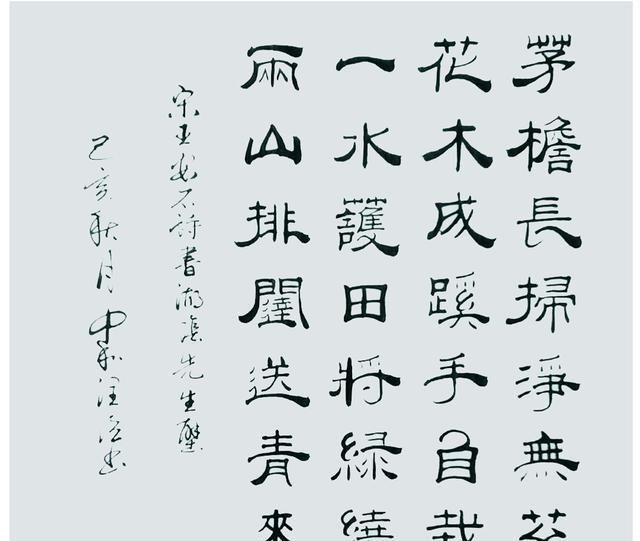 茅檐長掃淨無苔
花木成蹊手自栽
一水護田將綠繞
兩山排闥送青來
宋王安石詩書湖陰先生壁
己亥秋月書